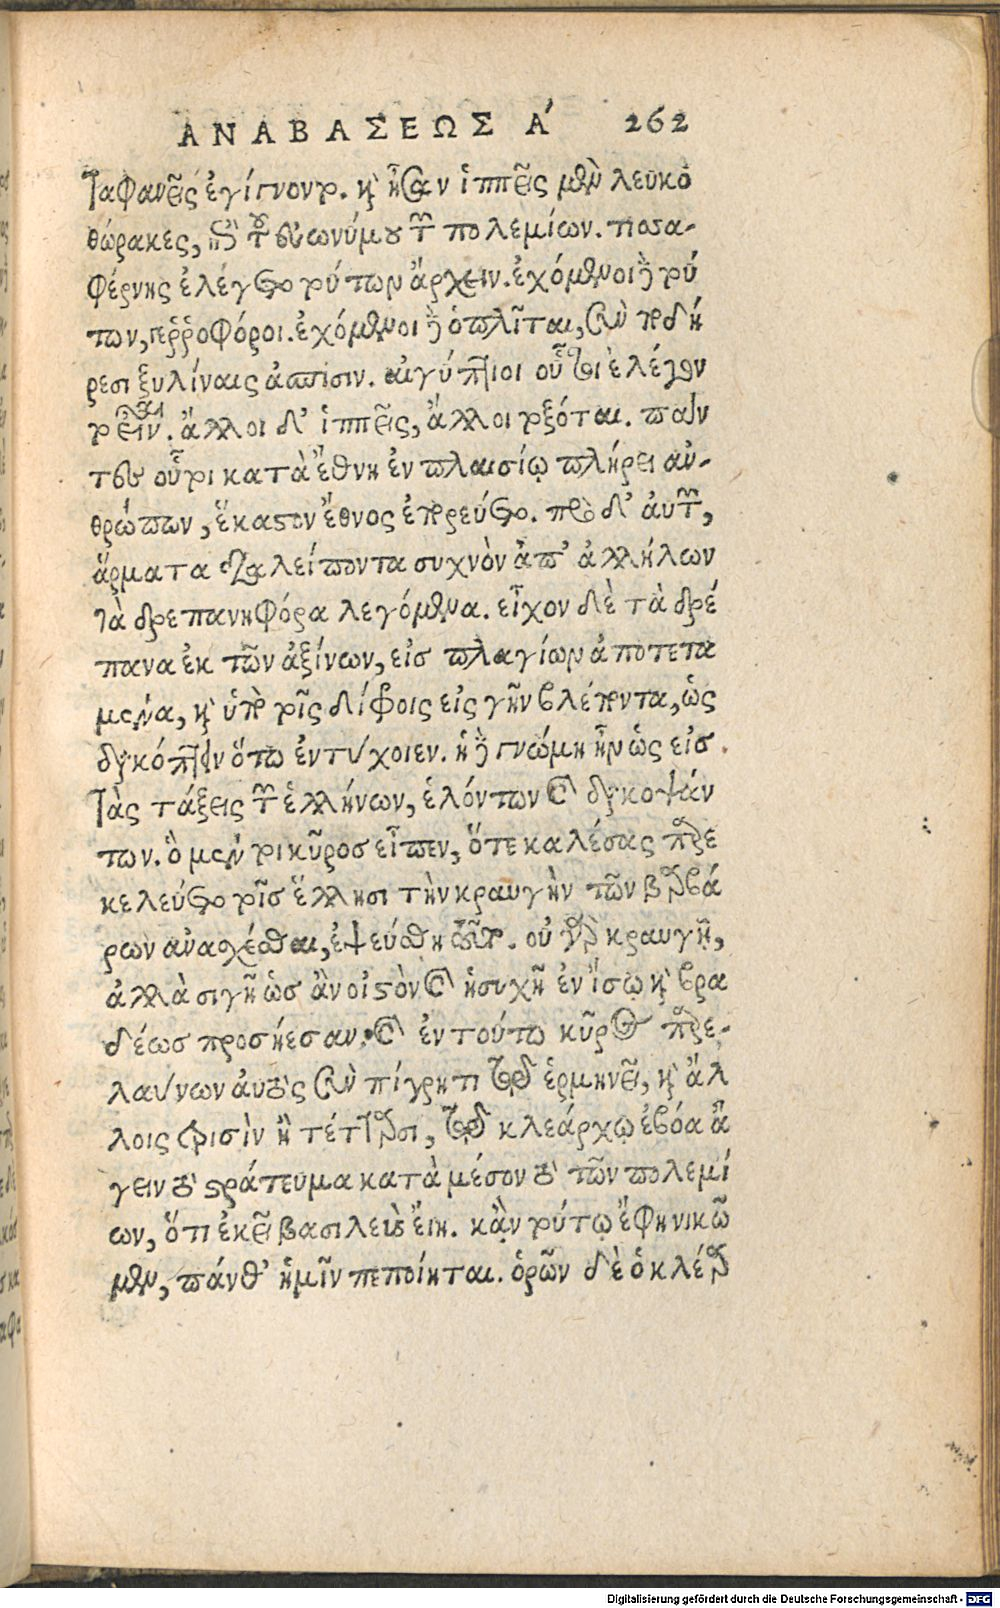 ΑΝΑΒΑΣΕΩΣ Α΄ 262
ταφανεῖς ἐγίγνοντο. καὶ ἦσαν ἱππεῖς μὲν λευκο
θώρακες, ἐπὶ τοῦ εὐωνύμου τῶν πολεμίων. τισσα-
φέρνης ἐλέγετο τούτων ἄρχειν. ἐχόμενοι δὲ τού
των, γερροφόροι. ἐχόμενοι δὲ ὁπλῖται, σὺν ποδή
ρεσι ξυλίναις ἀσπίσιν. αἰγύπτιοι οὗτοι ἐλέγον
το εἶναι. ἄλλοι δ' ἱππεῖς, ἄλλοι τοξόται. πάν
τες οὗτοι κατὰ ἔθνη ἐν πλαισίῳ πλήρει ἀν-
θρώπων, ἕκαστον ἔθνος ἐπορεύετο. πρὸ δ' αὐτῶν,
ἅρματα διαλείποντα συχνὸν ἀπ' ἀλλήλων
τὰ δρεπανηφόρα λεγόμενα. εἶχον δὲ τὰ δρέ
πανα ἐκ τῶν ἀξίνων, εἰς πλαγίων ἀποτετα
μένα, καὶ ὑπὸ τοῖς δίφροις εἰς γῆν βλέποντα, ὡς
διακόπτειν ὅτῳ ἐντύχοιεν. ἡ δὲ γνώμη ἦν ὡς εἰς
τὰς τάξεις τῶν ἑλλήνων, ἑλόντων καὶ διακοψάν
των. ὃ μέντοι κῦρος εἶπεν, ὅτε καλέσας παρε
κελεύετο τοῖς ἕλλησι τὴν κραυγὴν τῶν βαρβά
ρων ἀνασχέσθαι, ἐψεύσθη τοῦτο. οὐ γὰρ κραυγῇ,
ἀλλὰ σιγῇ ὡς ἀνοιστὸν καὶ ἡσυχῇ ἐν ἴσῳ καὶ βρα
δέως προσῄεσαν. καὶ ἐν τούτῳ κῦρος παρε-
λαύνων αὐτὸς σὺν πίγρητι τῷ ἑρμηνεῖ, καὶ ἄλ
λοις τρισὶν ἢ τέτταρσι, τῷ κλεάρχῳ ἐβόα ἄ
γειν τὸ στράτευμα κατὰ μέσον τὸ τῶν πολεμί
ων, ὅτι ἐκεῖ βασιλεὺς εἴη. κἂν τοῦτο ἔφη νικῶ
μεν, πάνθ' ἡμῖν πεποίηται. ὁρῶν δὲ ὁ κλέαρ
Digitalisierung gefördert durch die Deutsche Forschungsgemeinschaft - DFG